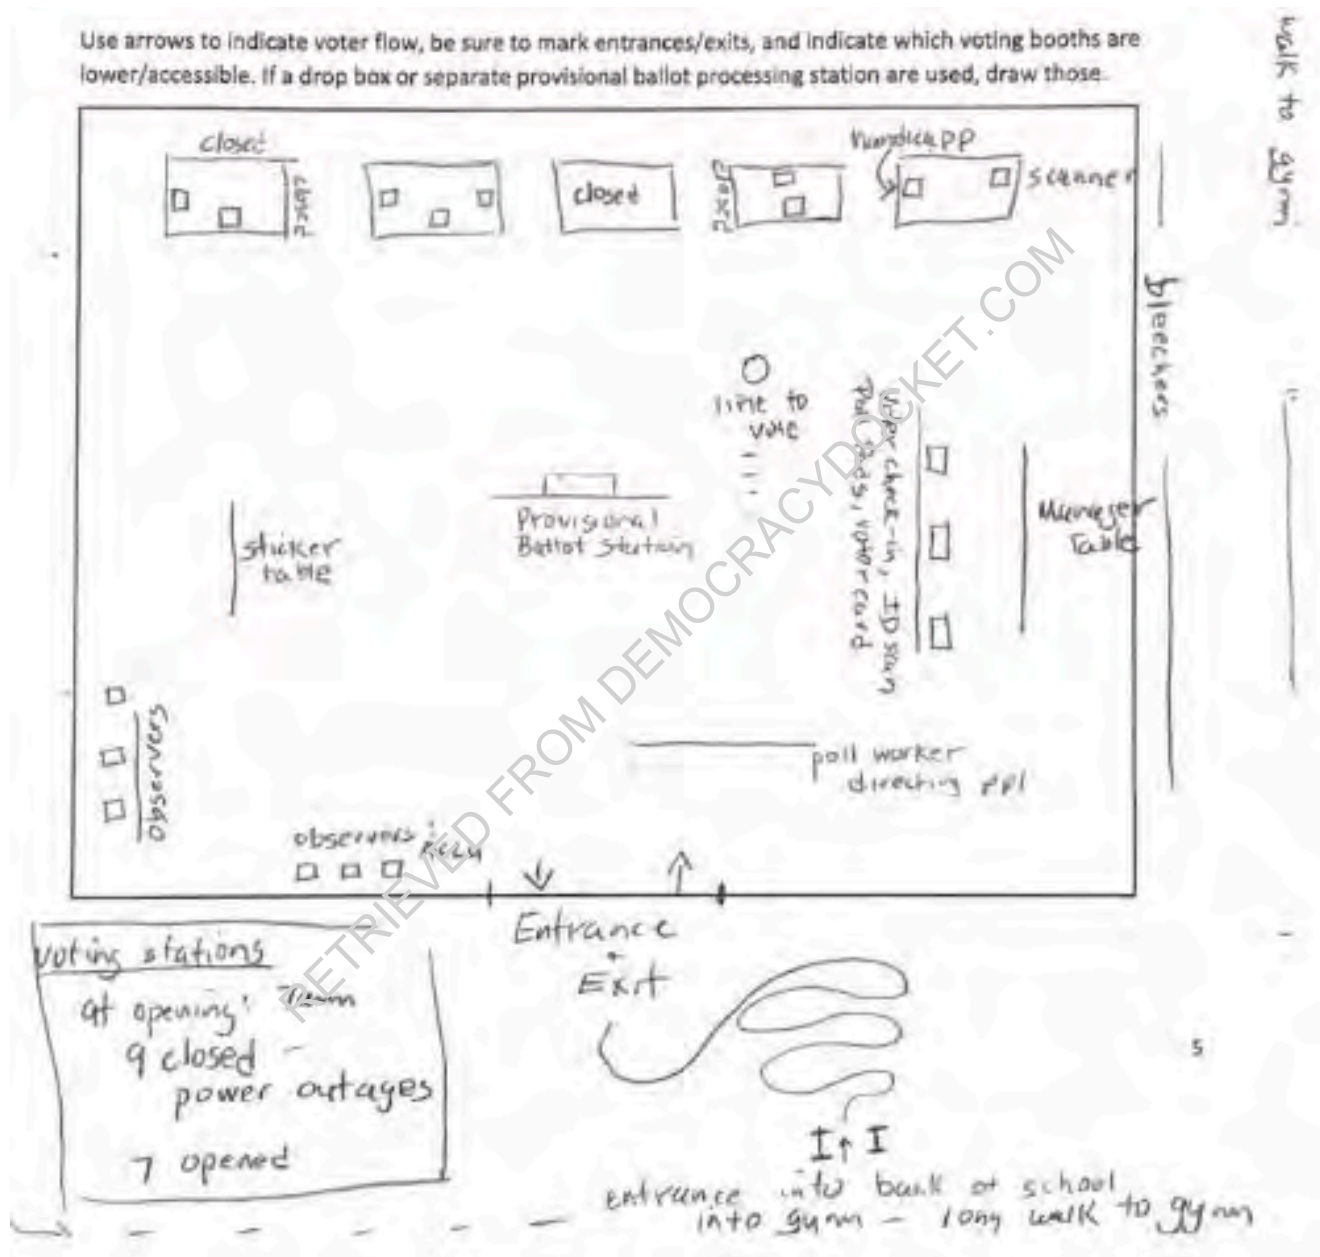 Use arrows to indicate voter flow, be sure to mark entrances/exits, and indicate which voting booths are
lower/accessible. If a drop box or separate provisional ballot processing station are used, draw those.
walk to gym
closed
closed
closed
closed
handicapp
scanner
bleechers
line to
vote
Voter check-in, ID scan
Poll Pads, voter card
Manager
Table
Provisional
Ballot Station
sticker
table
poll worker
directing ppl
observers
observers
RETRIEVED FROM DEMOCRACYDOCKET.COM
Entrance
+
Exit
voting stations
at opening: 7am
9 closed -
power outages
7 opened
5
entrance into back of school
into gym - long walk to gym